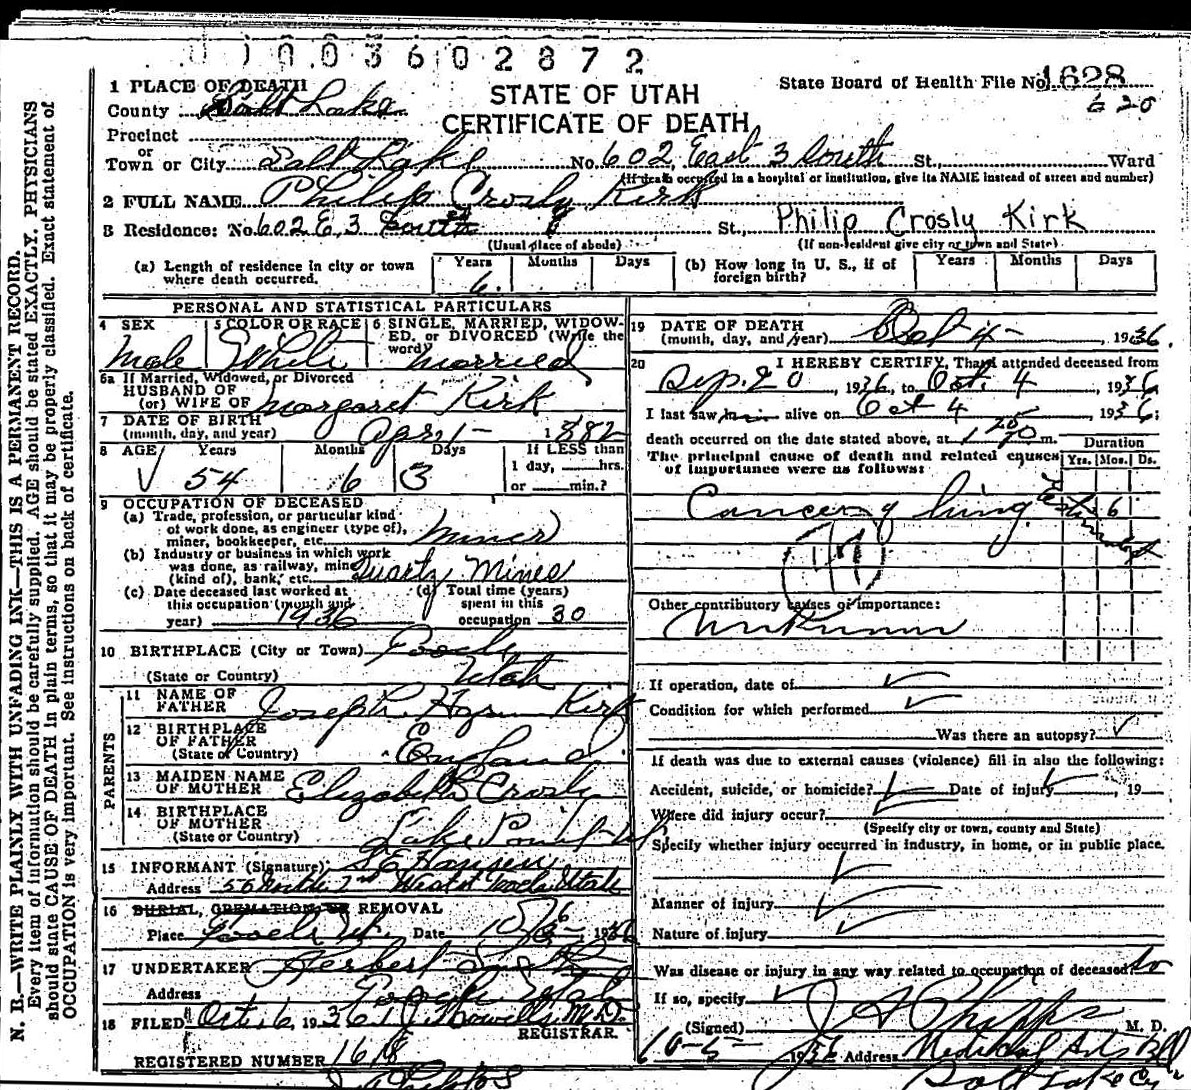 0 1 0 0 3 6 0 2 8 7 2
1 PLACE OF DEATH
State Board of Health File No. 1628
County Salt Lake
STATE OF UTAH
620
CERTIFICATE OF DEATH
Precinct
or
Town or City Salt Lake No. 602 East 3 South St., Ward
(If death occurred in a hospital or institution, give its NAME instead of street and number)
2 FULL NAME Philip Crosly Kirk
3 Residence: No. 602 E. 3 South St., Philip Crosly Kirk
(Usual place of abode) (If non-resident give city or town and State)
(a) Length of residence in city or town where death occurred. Years 6. Months Days
(b) How long in U. S., if of foreign birth? Years Months Days
PERSONAL AND STATISTICAL PARTICULARS
4 SEX Male
5 COLOR OR RACE White
6 SINGLE, MARRIED, WIDOWED, or DIVORCED (Write the word) married
6a If Married, Widowed, or Divorced
HUSBAND OF
(or) WIFE OF Margaret Kirk
7 DATE OF BIRTH
(month, day, and year) April 1- 1882
8 AGE Years 54 Months 6 Days 3 If LESS than
1 day, hrs.
or min.?
9 OCCUPATION OF DECEASED
(a) Trade, profession, or particular kind
of work done, as engineer (type of),
miner, bookkeeper, etc. Miner
(b) Industry or business in which work
was done, as railway, mine
(kind of), bank, etc. Quartz Mines
(c) Date deceased last worked at
this occupation (month and
year) 1936
(d) Total time (years)
spent in this
occupation 30
10 BIRTHPLACE (City or Town)
(State or Country) Utah
PARENTS
11 NAME OF
FATHER Joseph Kirk
12 BIRTHPLACE
OF FATHER
(State or Country) England
13 MAIDEN NAME
OF MOTHER Elizabeth Crosly
14 BIRTHPLACE
OF MOTHER
(State or Country) Lake Point
15 INFORMANT (Signature) S E Hansen
Address 2nd West Tooele Utah
16 BURIAL, CREMATION, OR REMOVAL
Place Tooele Ut. Date 10 6 1936
17 UNDERTAKER Herbert
Address Tooele Utah
18 FILED Oct. 6, 1936 M.D.
REGISTRAR.
REGISTERED NUMBER
19 DATE OF DEATH
(month, day, and year) Oct 4- , 1936.
20 I HEREBY CERTIFY, That I attended deceased from
Sep. 20 1936, to Oct. 4 , 1936
I last saw him alive on Oct 4 , 1936;
death occurred on the date stated above, at m.
The principal cause of death and related causes
of importance were as follows:
Duration
Yrs. Mos. Ds.
Cancer of lung 6
Other contributory causes of importance:
Unknown
If operation, date of
Condition for which performed
Was there an autopsy?
If death was due to external causes (violence) fill in also the following:
Accident, suicide, or homicide? Date of injury , 19
Where did injury occur?
(Specify city or town, county and State)
Specify whether injury occurred in industry, in home, or in public place.
Manner of injury
Nature of injury
Was disease or injury in any way related to occupation of deceased? No
If so, specify
(Signed) J A Phipps M. D.
10-5- 1936 Address Medical Arts Bld
Salt Lake City
N. B.—WRITE PLAINLY WITH UNFADING INK—THIS IS A PERMANENT RECORD.
Every item of information should be carefully supplied. AGE should be stated EXACTLY. PHYSICIANS
should state CAUSE OF DEATH in plain terms, so that it may be properly classified. Exact statement of
OCCUPATION is very important. See instructions on back of certificate.